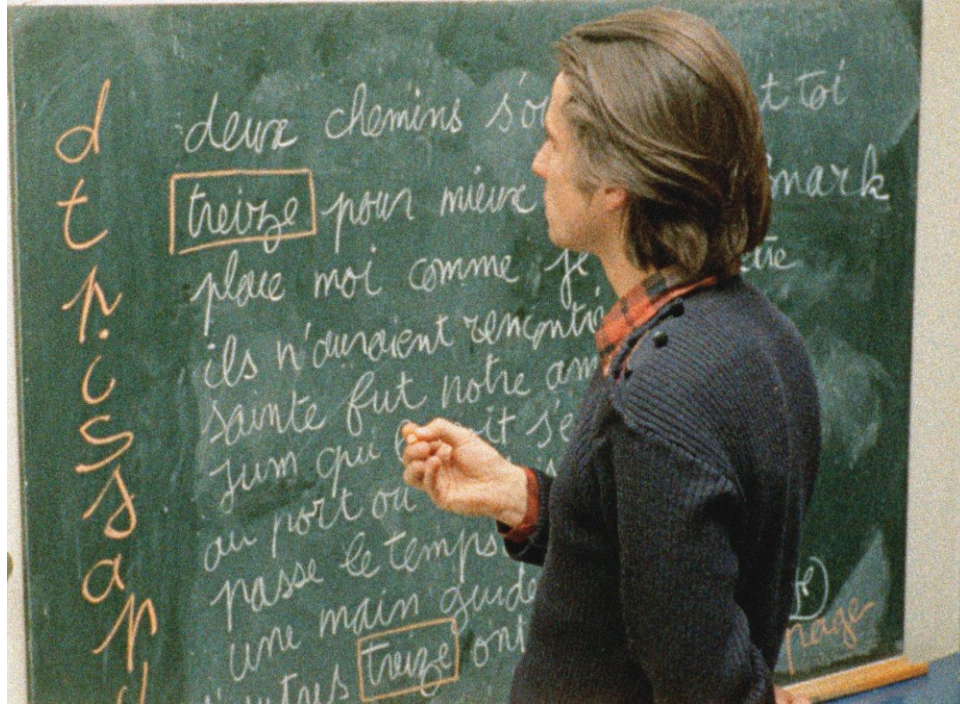 d deux chemins s'o t toi
t treize pour mieux mark
p place moi comme je
i ils n'auraient rencontr
s sainte fut notre am
s jum qui it s'e
a au port ou
p passe le temps
une main guide
d'autres treize ont
page